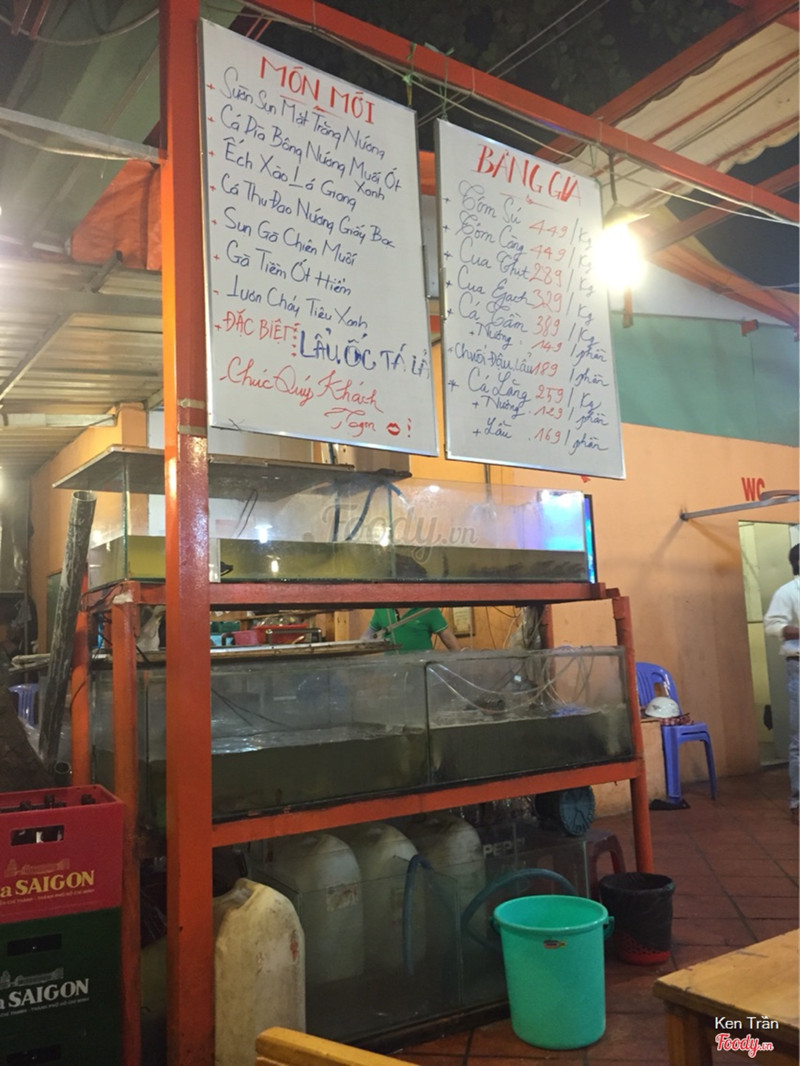 MÓN MỚI
+ Sườn Sụn Mắt Trăng Nướng
+ Cá Dĩa Bông Nướng Muối Ớt Xanh
+ Ếch Xào Lá Giang
+ Cá Thu Đao Nướng Giấy Bạc
+ Sụn Gà Chiên Muối
+ Gà Tiềm Ớt Hiểm
+ Lươn Cháy Tiêu Xanh
+ ĐẶC BIỆT: LẨU ỐC TÁ LẢ
Chúc Quý Khách
Ngon !
BẢNG GIÁ
+ Tôm Sú 449 / Kg
+ Tôm Càng 449 / Kg
+ Cua Thịt 289 / Kg
+ Cua Gạch 329 / Kg
+ Cá Tầm 389 / Kg
+ Nướng . 149 / phần
+ Chuối Đậu Lẩu 189 / phần
+ Cá Lăng 259 / Kg
+ Nướng . 129 / phần
+ Lẩu . 169 / phần
WC
Foody.vn
PEPSI
a SAIGON
SAIGON
Ken Trần
Foody.vn